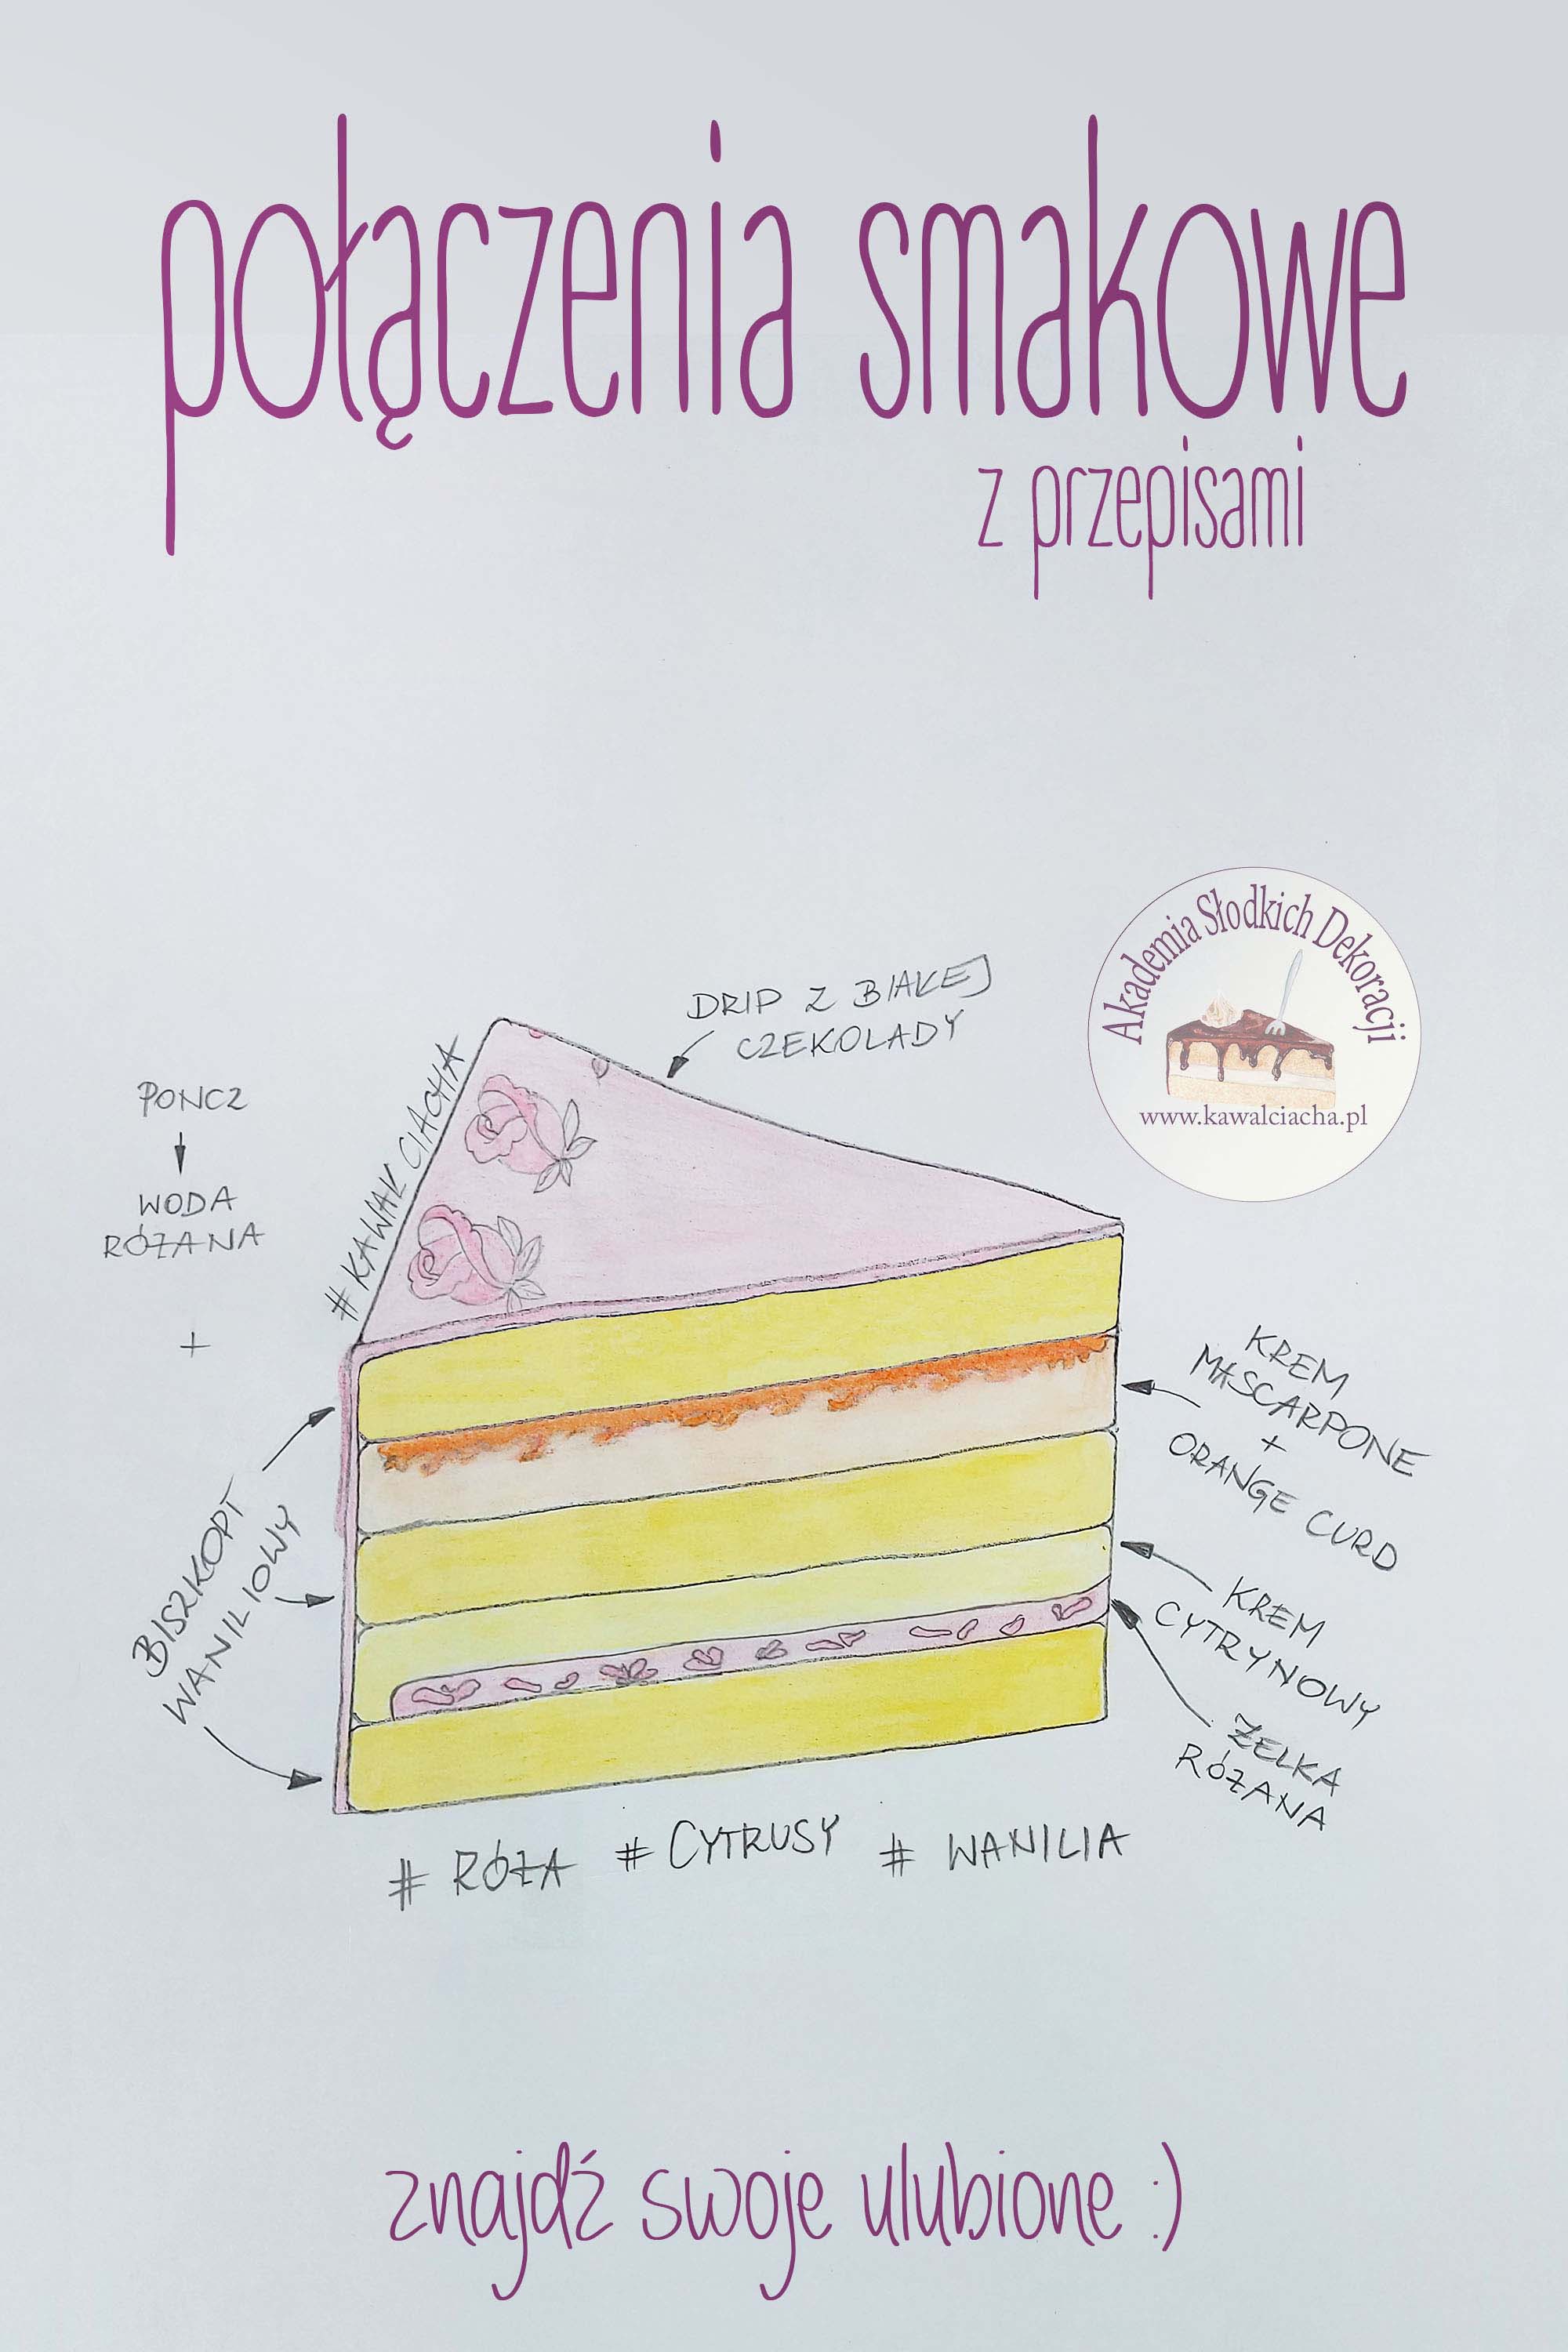 połączenia smakowe
z przepisami
Akademia Słodkich Dekoracji
www.kawalciacha.pl
DRIP Z BIAŁEJ
CZEKOLADY
# KAWAŁ CIACHA
PONCZ
WODA
RÓŻANA
+
BISZKOPT
WANILIOWY
KREM
MASCARPONE
+
ORANGE CURD
KREM
CYTRYNOWY
ŻELKA
RÓŻANA
# RÓŻA # CYTRUSY # WANILIA
znajdź swoje ulubione :)